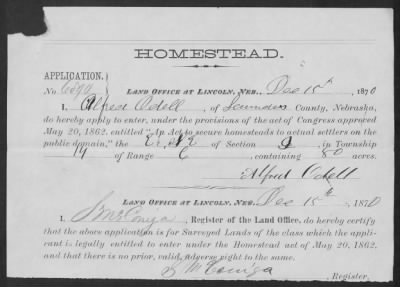 HOMESTEAD.
APPLICATION.
No. 6390 LAND OFFICE AT LINCOLN, NEB., Dec 15th, 1870
I, Alfred Odell, of Saunders County, Nebraska,
do hereby apply to enter, under the provisions of the act of Congress approved
May 20, 1862, entitled "An Act to secure homesteads to actual settlers on the
public domain," the E½ of Section 2 in Township
14 of Range 6, containing 80 acres.
Alfred Odell
LAND OFFICE AT LINCOLN, NEB., Dec 15th 1870
I, Register of the Land Office, do hereby certify
that the above application is for Surveyed Lands of the class which the appli-
cant is legally entitled to enter under the Homestead act of May 20, 1862,
and that there is no prior, valid, adverse right to the same.
, Register.